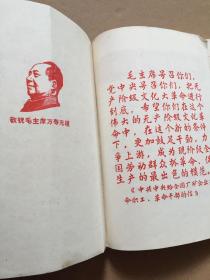 敬祝毛主席万寿无疆
毛主席号召你们，
党中央号召你们，把无
产阶级文化大革命进行
到底。希望你们在这个
伟大的无产阶级文化革
命中，在这个新的条件
下，更加鼓足干劲，力
争上游，成为现阶级全
国劳动群众抓革命、促
生产的最出色的模范。
《中共中央给全国厂矿企业革
命职工、革命干部的信》